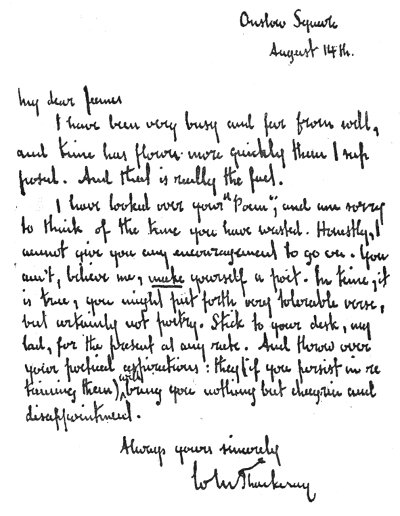 Onslow Square
August 14th.
My dear James
I have been very busy and far from well,
and time has flown more quickly than I sup
posed. And that is really the fact.
I have looked over your "Poem", and am sorry
to think of the time you have wasted. Honestly, I
cannot give you any encouragement to go on. You
can't, believe me, make yourself a poet. In time, it
is true, you might put forth very tolerable verse,
but certainly not poetry. Stick to your desk, my
lad, for the present at any rate. And throw over
your poetical aspirations: they (if you persist in re
taining them) will bring you nothing but chagrin and
disappointment.
Always yours sincerely
W M Thackeray